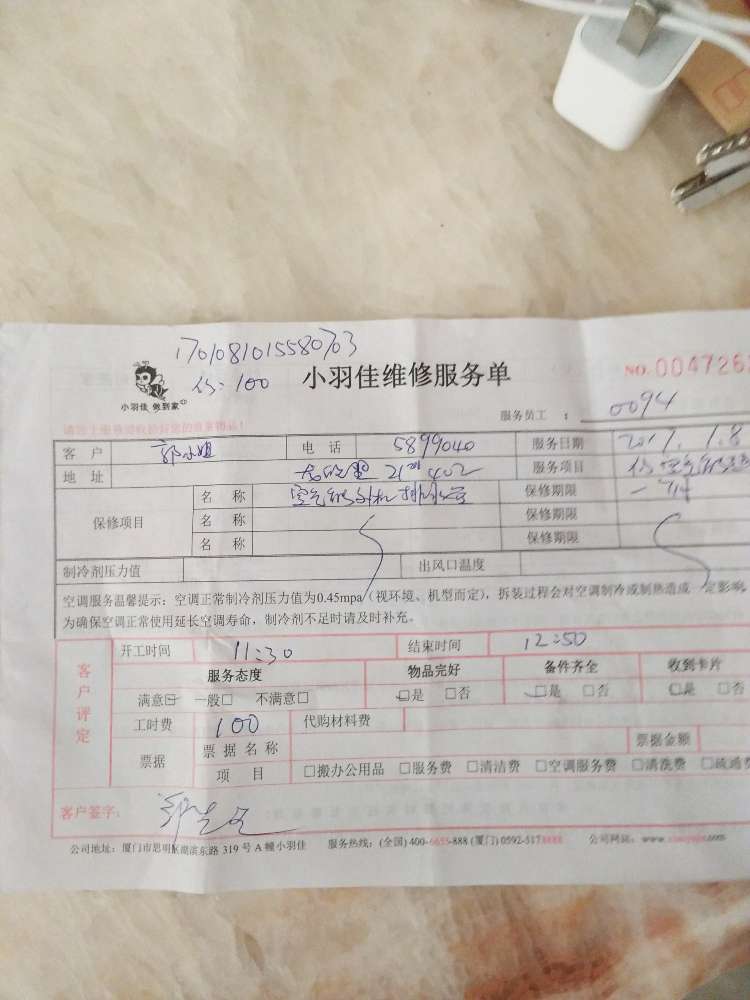 1701081015580703
价:100
小羽佳 做到家
小羽佳维修服务单
NO.004726
服务员工 : 0094
客户 郭小姐 电话 5899040 服务日期 2017.1.8
地址 21 402 服务项目
保修项目 名称 空气能外机排水管 保修期限 一个月
名称 保修期限
名称 保修期限
制冷剂压力值 出风口温度
空调服务温馨提示:空调正常制冷剂压力值为0.45mpa(视环境、机型而定),拆装过程会对空调制冷或制热造成一定影响,
为确保空调正常使用延长空调寿命,制冷剂不足时请及时补充。
客户评定
开工时间 11:30 结束时间 12:50
服务态度 物品完好 备件齐全 收到卡片
满意☑ 一般□ 不满意□ ☑是 □否 ☑是 □否 ☑是 □否
工时费 100 代购材料费
票据 票据名称 票据金额
项目 □搬办公用品 □服务费 □清洁费 □空调服务费 □清洗费 □疏通费
客户签字:
公司地址:厦门市思明区湖滨东路 319 号 A 幢小羽佳 服务热线:(全国) 400-6655-888 (厦门) 0592-5178888 公司网站:www.